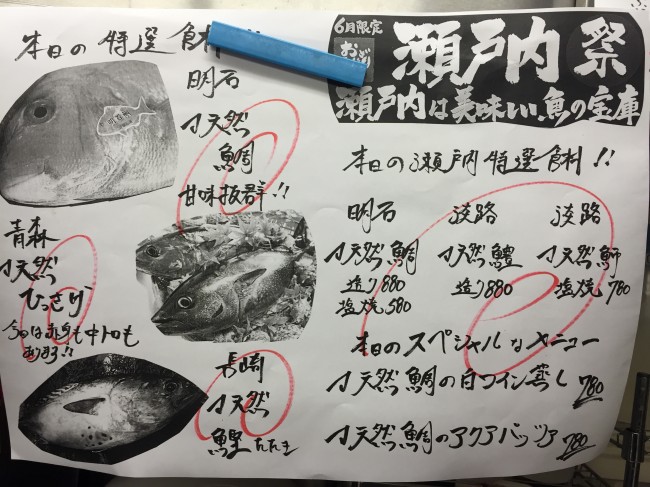 本日の特選食材
明石
天然
鯛
甘味抜群!!
青森
天然
ひっさげ
今日は赤身も中トロも
あります!!
長崎
天然
鰹たたき
6月限定
瀬戸内祭
瀬戸内は美味しい魚の宝庫
本日の瀬戸内特選食材!!
明石 淡路 淡路
天然鯛 天然鱧 天然鰤
造り880 造り880 塩焼 780
塩焼 580
本日のスペシャルなメニュー
天然鯛の白ワイン蒸し 780
天然鯛のアクアパッツァ 780